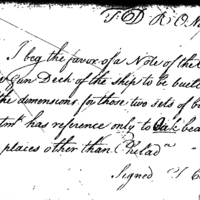 I beg the favor of a Note of the
Gun Deck of the ship to be built
the dimensions for those two sets of be
has reference only to Oak bea
places other than Philad
Signed